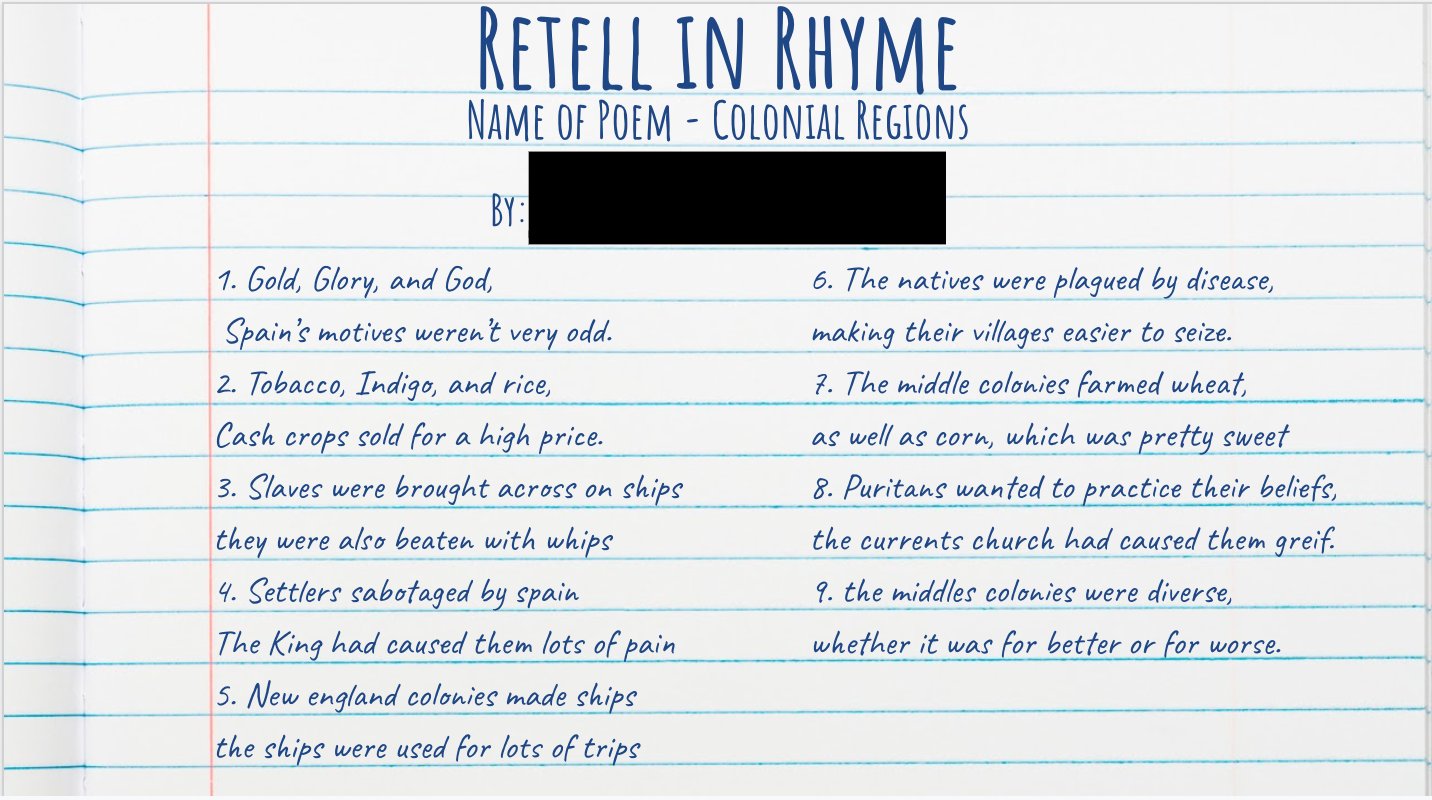 Retell in Rhyme
Name of Poem - Colonial Regions
By:
1. Gold, Glory, and God,
Spain's motives weren't very odd.
2. Tobacco, Indigo, and rice,
Cash crops sold for a high price.
3. Slaves were brought across on ships
they were also beaten with whips
4. Settlers sabotaged by spain
The King had caused them lots of pain
5. New england colonies made ships
the ships were used for lots of trips
6. The natives were plagued by disease,
making their villages easier to seize.
7. The middle colonies farmed wheat,
as well as corn, which was pretty sweet
8. Puritans wanted to practice their beliefs,
the currents church had caused them greif.
9. the middles colonies were diverse,
whether it was for better or for worse.